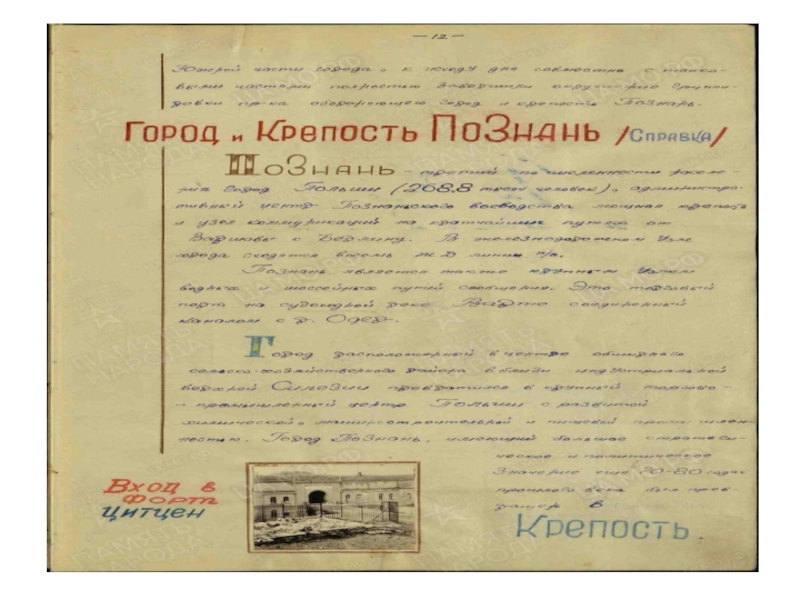 — 12 —
Южной части города, к исходу дня совместно с танко-
выми частями полностью завершили окружение группи-
ровки пр-ка обороняющего город и крепость Познань.
Город и Крепость Познань /Справка/
Познань - третий по численности населе-
ния город Польши (268,8 тысяч человек), администра-
тивный центр Познаньского воеводства мощная крепость
и узел коммуникаций на кратчайших путях от
Варшавы к Берлину. В железнодорожном узле
города сходятся восемь ж.д линий
Познань является также крупным узлом
водных и шоссейных путей сообщения. Это торговый
порт на судоходной реке Варте соединенный
каналом с р. Одер.
Город расположенный в центре обширного
сельско-хозяйственного района вблизи индустриальной
Верхней Силезии превратился в крупный торгово-
- промышленный центр Польши с развитой
химической, машиностроительной и пищевой промышлен-
ностью. Город Познань, имеющий большое стратеги-
ческое и политическое
значение еще 70-80 годах
прошлого века был прев-
ращен в
Крепость.
Вход в
Форт
Цитцен
ПАМЯТЬ
НАРОДА